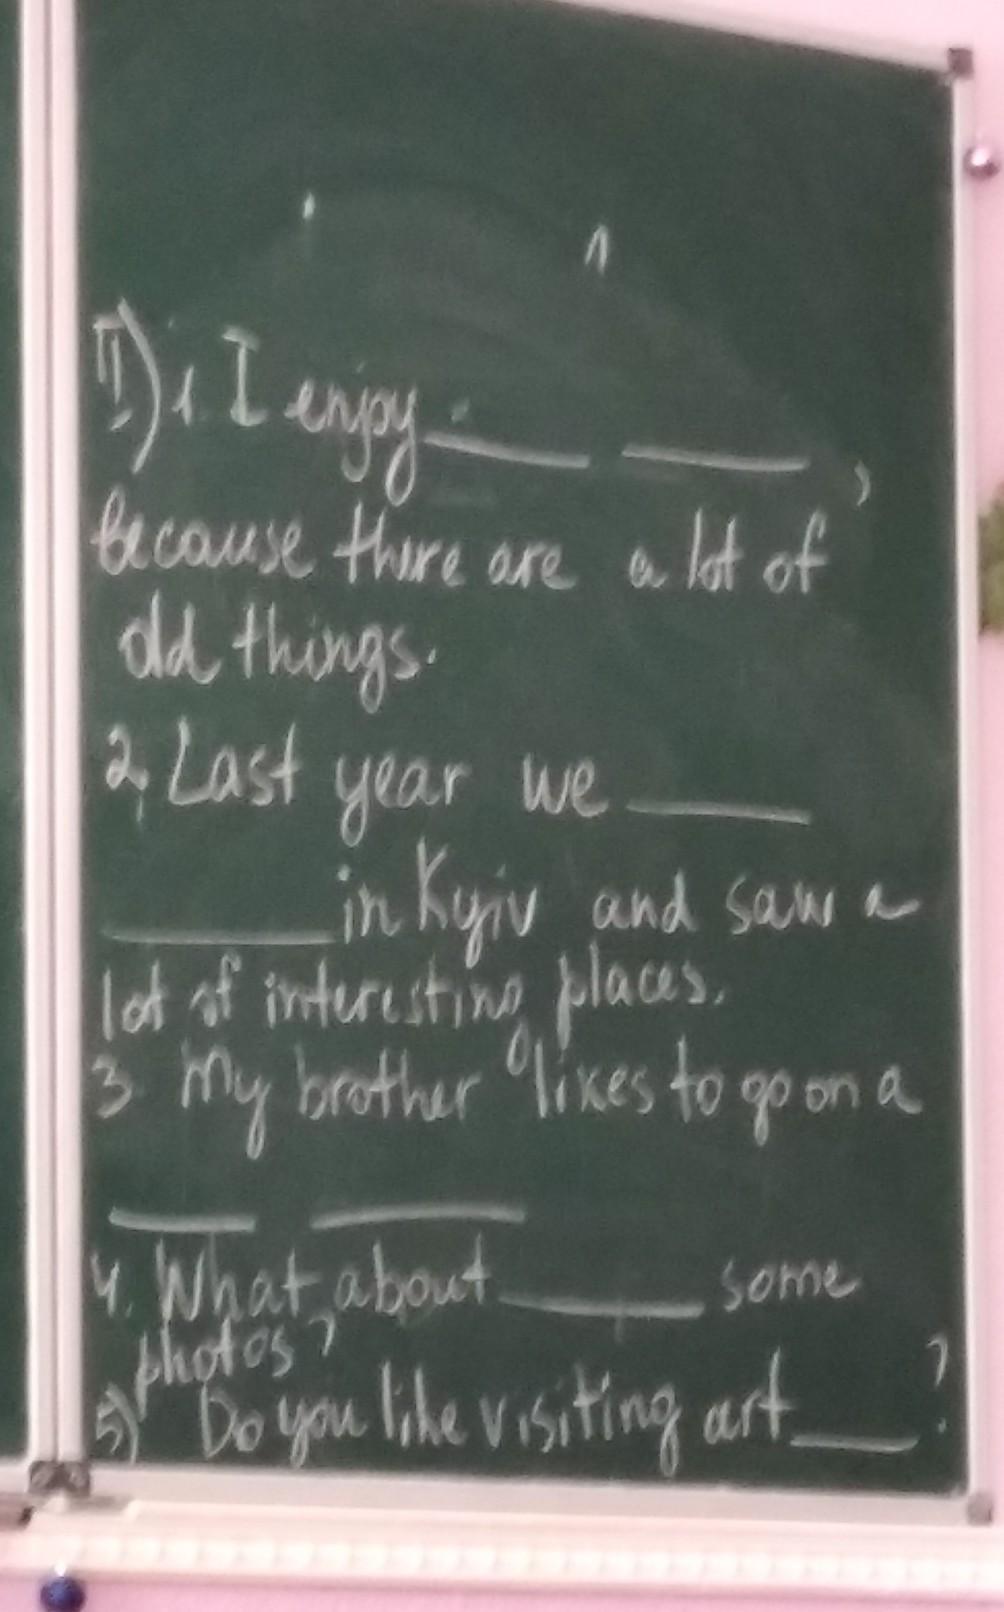 II) 1. I enjoy ____ ____,
because there are a lot of
old things.
2. Last year we ____
____ in Kyiv and saw a
lot of interesting places.
3. My brother likes to go on a
____ ____
4. What about ____ some
photos?
5) Do you like visiting art ____?